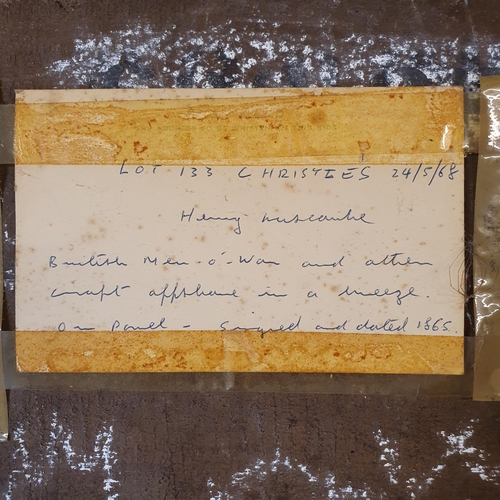 LOT 133 CHRISTIES 24/5/68
Henry Luscombe
British Men-o'-War and other
craft offshore in a breeze.
On Panel - Signed and dated 1865.